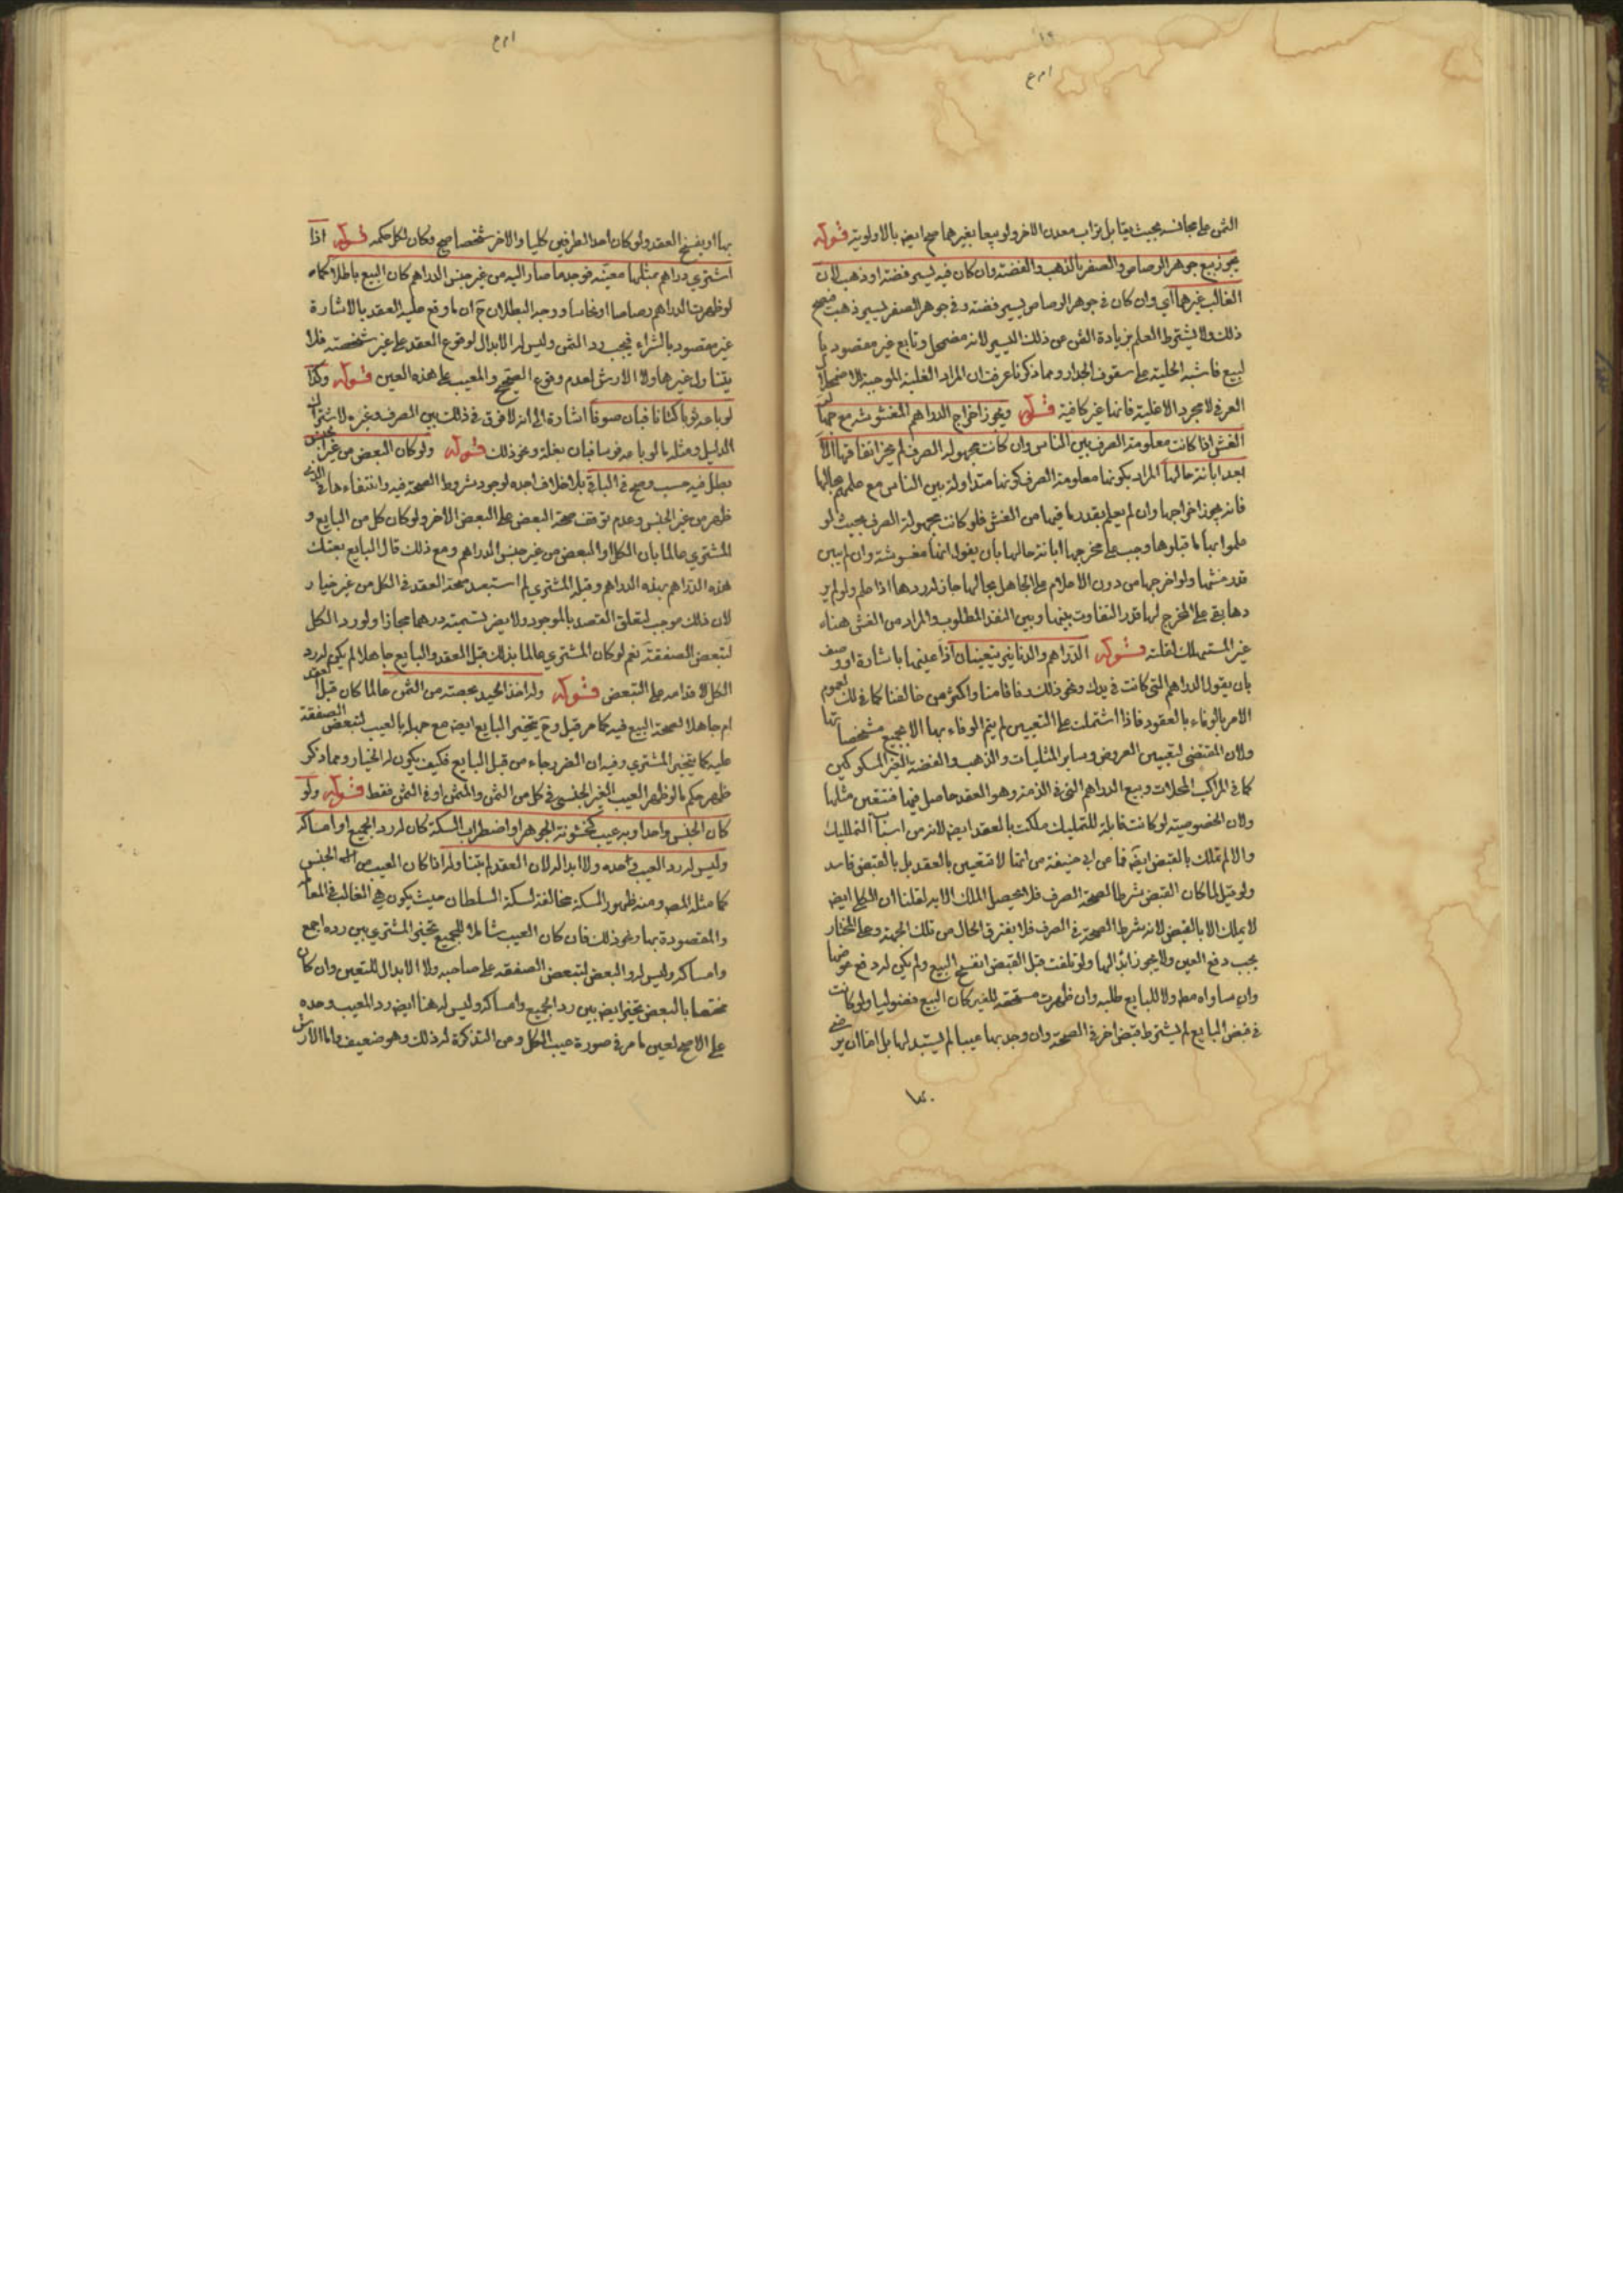 الثمن على مجانسه بحيث يقابل تراب معدن الاخر ولو بيعا بغيرهما صح ايض بالاولوية قوله
يجوز بيع جوهر الرصاص والصفر بالذهب والفضة وان كان فيه يسير فضة او ذهب لان
الغالب غيرهما اي وان كان في جوهر الرصاص يسير فضة وفي جوهر الصفر يسير ذهب صح
ذلك ولا يشترط العلم بزيادة الثمن من ذلك اليسير لانه مضمحل وتابع غير مقصود با
لبيع فاشبه الحلية على سقوف الجدار ومما ذكرنا عرفت ان المراد الغلبة الموجبة لاضمحلال
العرفي لا مجرد الاغلبية فانها غير كافية قوله ويجوز اخراج الدراهم المغشوشة مع جهالة
الغش اذا كانت معلومة الصرف بين الناس وان كانت مجهولة الصرف لم يجز انفاقها الا
بعد ابانة حالها المراد بكونها معلومة الصرف كونها متداولة بين الناس مع علمهم بحالها
فانه يجوز اخراجها وان لم يعلم بقدر ما فيها من الغش فلو كانت مجهولة الصرف بحيث لو
علموا بها لما قبلوها وجب على مخرجها ابانة حالها بان يقول انها مغشوشة وان لم يبين
قدر غشها ولو اخرجها من دون الاعلام على الجاهل بحالها جاز له ردها اذا علم ولو لم ير
دها بقي على المخرج لها قدر التفاوت بينها وبين النقد المطلوب والمراد من الغش هنا
غير المستهلك لقلته قوله الدراهم والدنانير يتعينان اذا عينها باشارة او وصف
بان يقول الدراهم التي كانت في يدك ونحو ذلك وفاقا منا واكثر من خالفنا كما في لك لعموم
الامر بالوفاء بالعقود فاذا اشتملت على التعيين لم يتم الوفاء بها الا بجميع مشخصاتها
ولان المقتضي لتعيين العروض وساير المثليات والذهب والفضة الغير المسكوكين
كما في المراكب المحلات وبيع الدراهم التي في الذمة وهو العقد حاصل فيها فتتعين مثلها
ولان الخصوصية لو كانت قابلة للتمليك ملكت بالعقد ايض لانه من اسباب التمليك
والا لم تملك بالقبض ايض فما عن ابي حنيفة من انها لا تتعين بالعقد بل بالقبض فاسد
ولو قيل لما كان القبض شرطا لصحة الصرف فلا يحصل الملك الا به لقلنا ان الكلي ايض
لا يملك الا بالقبض لانه شرط الصحة في الصرف فلا يفترق الحال من تلك الجهة وعلى المختار
يجب دفع العين ولا يجوز ابدالها ولو تلفت قبل القبض انفسخ البيع ولم يكن له دفع عوضها
وان ساواه مط ولا للبايع طلبه وان ظهرت مستحقة للغير كان البيع فضوليا ولو كانت
في قبض البايع لم يشترط قبض اخر في الصحة وان وجد بها عيبا لم يستبدلها بل اما ان يرضى
بها او يفسخ العقد ولو كان احد الطرفين كليا والاخر شخصا صح وكان لكل حكمه قوله اذا
اشترى دراهم بمثلها معينة فوجد ما صار اليه من غير جنس الدراهم كان البيع باطلا كما
لو ظهرت الدراهم رصاصا او نحاسا ووجه البطلان ح ان ما وقع عليه العقد بالاشارة
غير مقصود بالشراء فيجب رد الثمن وليس له الابدال لوقوع العقد على غير شخصته فلا
يتناول غيرها ولا الارش لعدم وقوع الصحيح والمعيب على هذه العين قوله وكذا
لو باعه ثوبا كتانا فبان صوفا اشارة الى انه لا فرق في ذلك بين الصرف وغيره لاشتراك
الدليل ومثله ما لو باعه فرسا فبان بغلة ونحو ذلك قوله ولو كان البعض من غير الجنس
بطل فيه حسب وصح في الباقي بلا خلاف اجده لوجود شروط الصحة فيه وانتفاءها في الذي
ظهر من غير الجنس وعدم توقف صحة البعض على البعض الاخر ولو كان كل من البايع و
المشتري عالما بان الكل او البعض من غير جنس الدراهم ومع ذلك قال البايع بعتك
هذه الدراهم بهذه الدراهم وقبله المشتري لم استبعد صحة العقد في الكل من غير خيار
لان ذلك موجب لتعلق القصد بالموجود ولا يضر تسميته درهما مجازا وله رد الكل
لتبعض الصفقة نعم لو كان المشتري عالما بذلك قبل العقد والبايع جاهلا لم يكن له رد
الكل لاقدامه على التبعض قوله وله اخذ الجيد بحصته من الثمن عالما كان قبل العقد
ام جاهلا لصحة البيع فيه كما مر قيل وح يتخير البايع ايض مع جهله بالعيب لتبعض الصفقة
عليه كما يتخير المشتري وفيه ان الضرر جاء من قبل البايع فكيف يكون له الخيار ومما ذكر
ظهر حكم ما لو ظهر العيب الغير الجنسي في كل من الثمن والمثمن او في الثمن فقط قوله ولو
كان الجنس واحدا وبه عيب كخشونة الجوهر او اضطراب السكة كان له رد الجميع او امساكه
وليس له رد العيب وحده ولا ابداله لان العقد لم يتناوله اذا كان العيب من الجنس
كما مثله المص ومنه ظهور السكة مخالفة لسكة السلطان حيث يكون هي الغالب في المعا
والمقصودة بها ونحو ذلك فان كان العيب شاملا للجميع تخير المشتري بين رده اجمع
وامساكه وليس له رد البعض لتبعض الصفقة على صاحبه ولا الابدال للتعين وان كان
مختصا بالبعض تخير ايض بين رد الجميع وامساكه وليس له هنا ايض رد المعيب وحده
على الاصح لعين ما مر في صورة عيب الكل وعن التذكرة له ذلك وهو ضعيف واما الارش